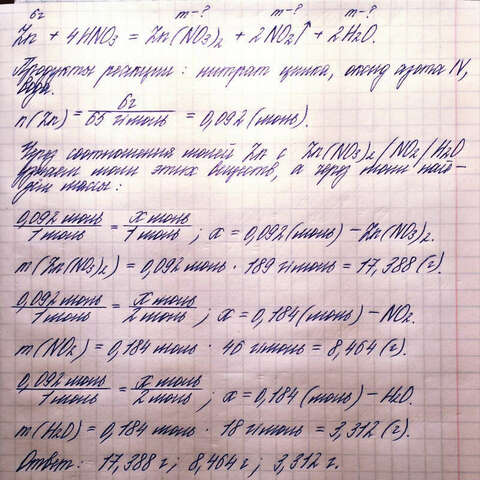 6г m-? m-? m-?
Zn + 4HNO₃ = Zn(NO₃)₂ + 2NO₂↑ + 2H₂O.
Продукты реакции: нитрат цинка, оксид азота IV,
вода.
n(Zn) = 6г / 65 г/моль = 0,092 (моль).
Через соотношения молей Zn с Zn(NO₃)₂/NO₂/H₂O
моли этих веществ, а через моли най-
дем массы:
0,092 моль / 1 моль = x моль / 1 моль ; x = 0,092 (моль) – Zn(NO₃)₂.
m(Zn(NO₃)₂) = 0,092 моль · 189 г/моль = 17,388 (г).
0,092 моль / 1 моль = x моль / 2 моль ; x = 0,184 (моль) – NO₂.
m(NO₂) = 0,184 моль · 46 г/моль = 8,464 (г).
0,092 моль / 1 моль = x моль / 2 моль ; x = 0,184 (моль) – H₂O.
m(H₂O) = 0,184 моль · 18 г/моль = 3,312 (г).
Ответ: 17,388 г; 8,464 г; 3,312 г.